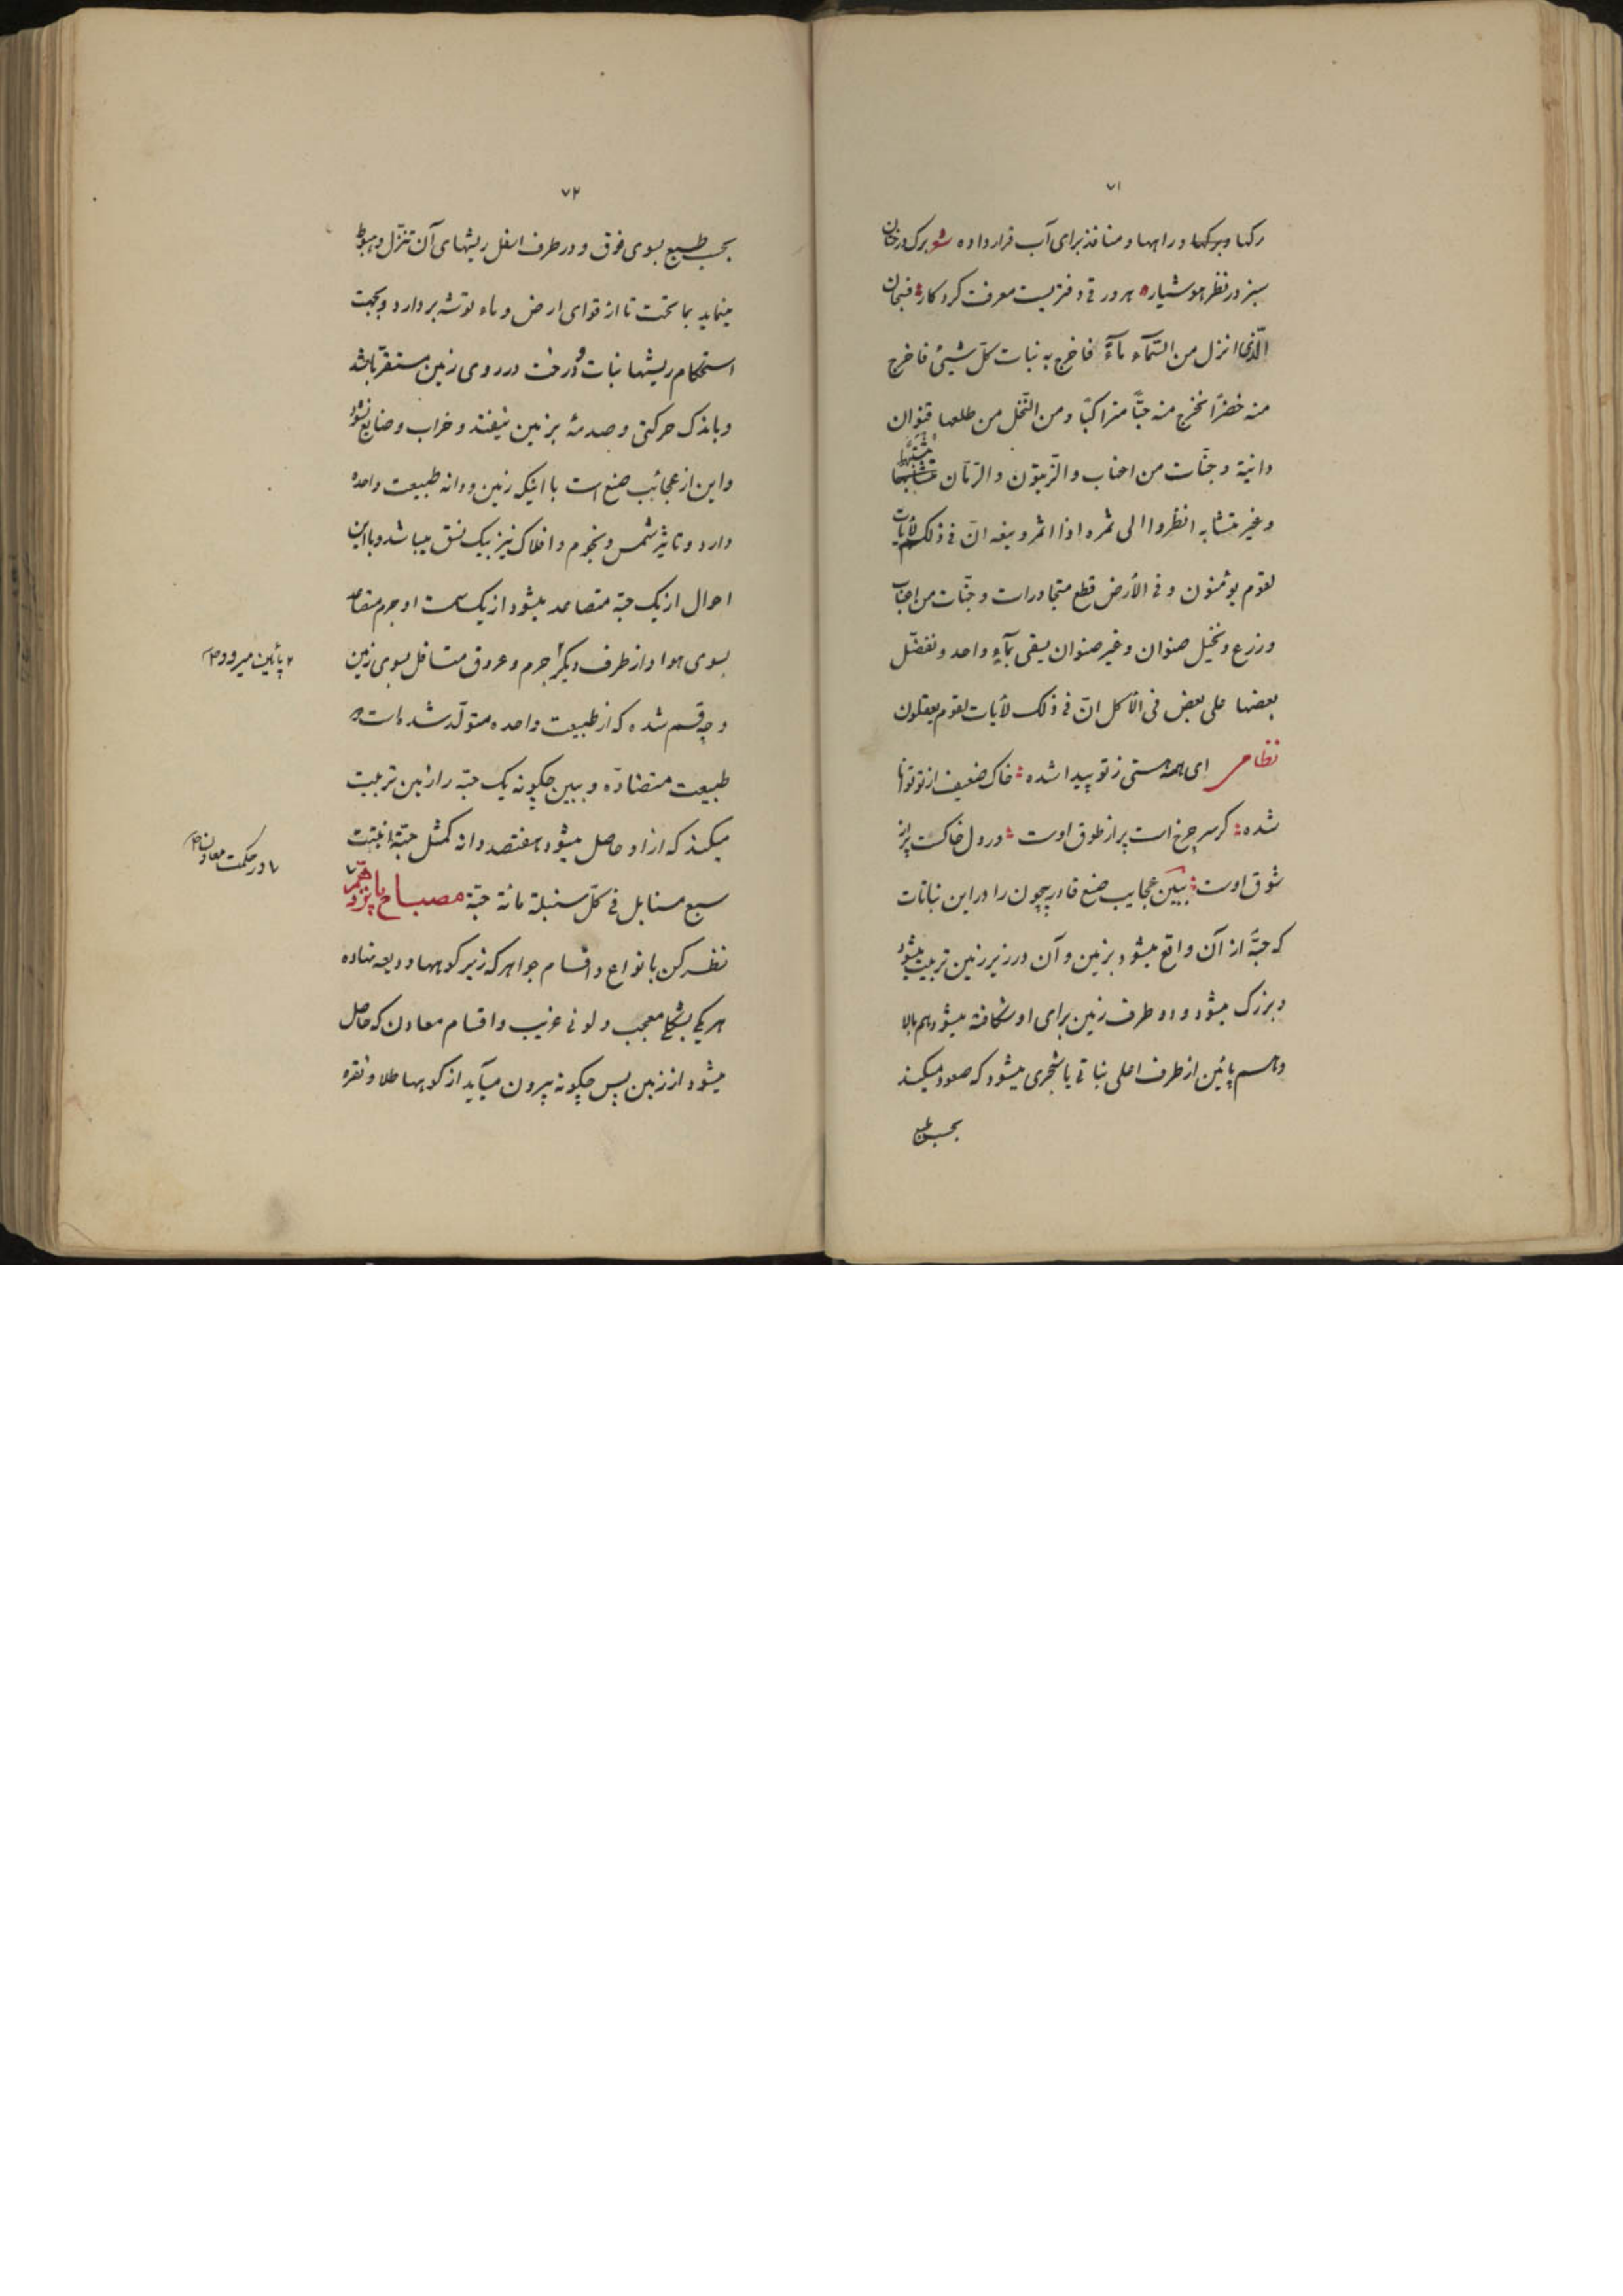 ۷۱
رکها و برکها و راهها و منافذ برای آب قرار داده شو برک درختان
سبز در نظر هوشیار هر ورقی دفتریست معرفت کردکار فسبحان
الّذی انزل من السّمآء مآءً فاخرج به نبات کلّ شیئ فاخرج
منه خضرًا نخرج منه حبًّا متراکبًا و من النّخل من طلعها قنوان
دانیة و جنّات من اعناب و الزّیتون و الرّمّان مشتبهًا
و غیر متشابه انظروا الی ثمره اذا اثمر و ینعه انّ فی ذلک لأیات
لقوم یوٴمنون و فی الأرض قطع متجاورات و جنّات من اعناب
و زرع و نخیل صنوان و غیر صنوان یسقی بمآءٍ واحد و نفضّل
بعضها علی بعض فی الأکل انّ فی ذلک لأیات لقوم یعقلون
نظامی ای همه هستی ز تو پیدا شده خاک ضعیف از تو توانا
شده کر سر چرخ است پر از طوق اوست ور دل خاکست پر از
شوق اوست ببین عجایب صنع قادر بیچون را در این نباتات
که حبّهٔ از آن واقع میشود بزمین و آن در زیر زمین تربیت میشود
و بزرک میشود و دو طرف زمین برای او شکافته میشود هم بالا
و هم پائین از طرف اعلی نباتی یا شجری میشود که صعود میکند
بحسب طبع
۷۲
بحسب طبع بسوی فوق و در طرف اسفل ریشهای آن تنزّل و هبوط
مینماید بما تحت تا از قوای ارض و ماء توشه بردارد و بجهت
استحکام ریشها نبات و درخت در روی زمین مستقرّ باشد
و باندک حرکتی و صدمهٔ بزمین نیفتد و خراب و ضایع نشود
و این از عجائب صنع است با اینکه زمین و دانه طبیعت واحده
دارد و تاثیر شمس و نجوم و افلاک نیز بیک نسق میباشد و با این
احوال از یک حبّه متصاعد میشود از یک سمت او جرم متصاعد
بسوی هوا و از طرف دیکر جرم و عروق متسافل بسوی زمین
پائین میرود
و چه قسم شده که از طبیعت واحده متولّد شده است دو
طبیعت متضادّه و ببین چکونه یک حبّه را زمین تربیت
میکند که از او حاصل میشود هفتصد دانه کمثل حبّة انبتت
سبع سنابل فی کلّ سنبلة مائة حبّة مصباح پانزدهم
در حکمت معادن
نظر کن بانواع و اقسام جواهر که زیر کوهها ودیعه نهاده
هر یکی بشکلی معجب و لونی غریب و اقسام معادن که حاصل
میشود از زمین پس چکونه بیرون میآید از کوهها طلا و نقره